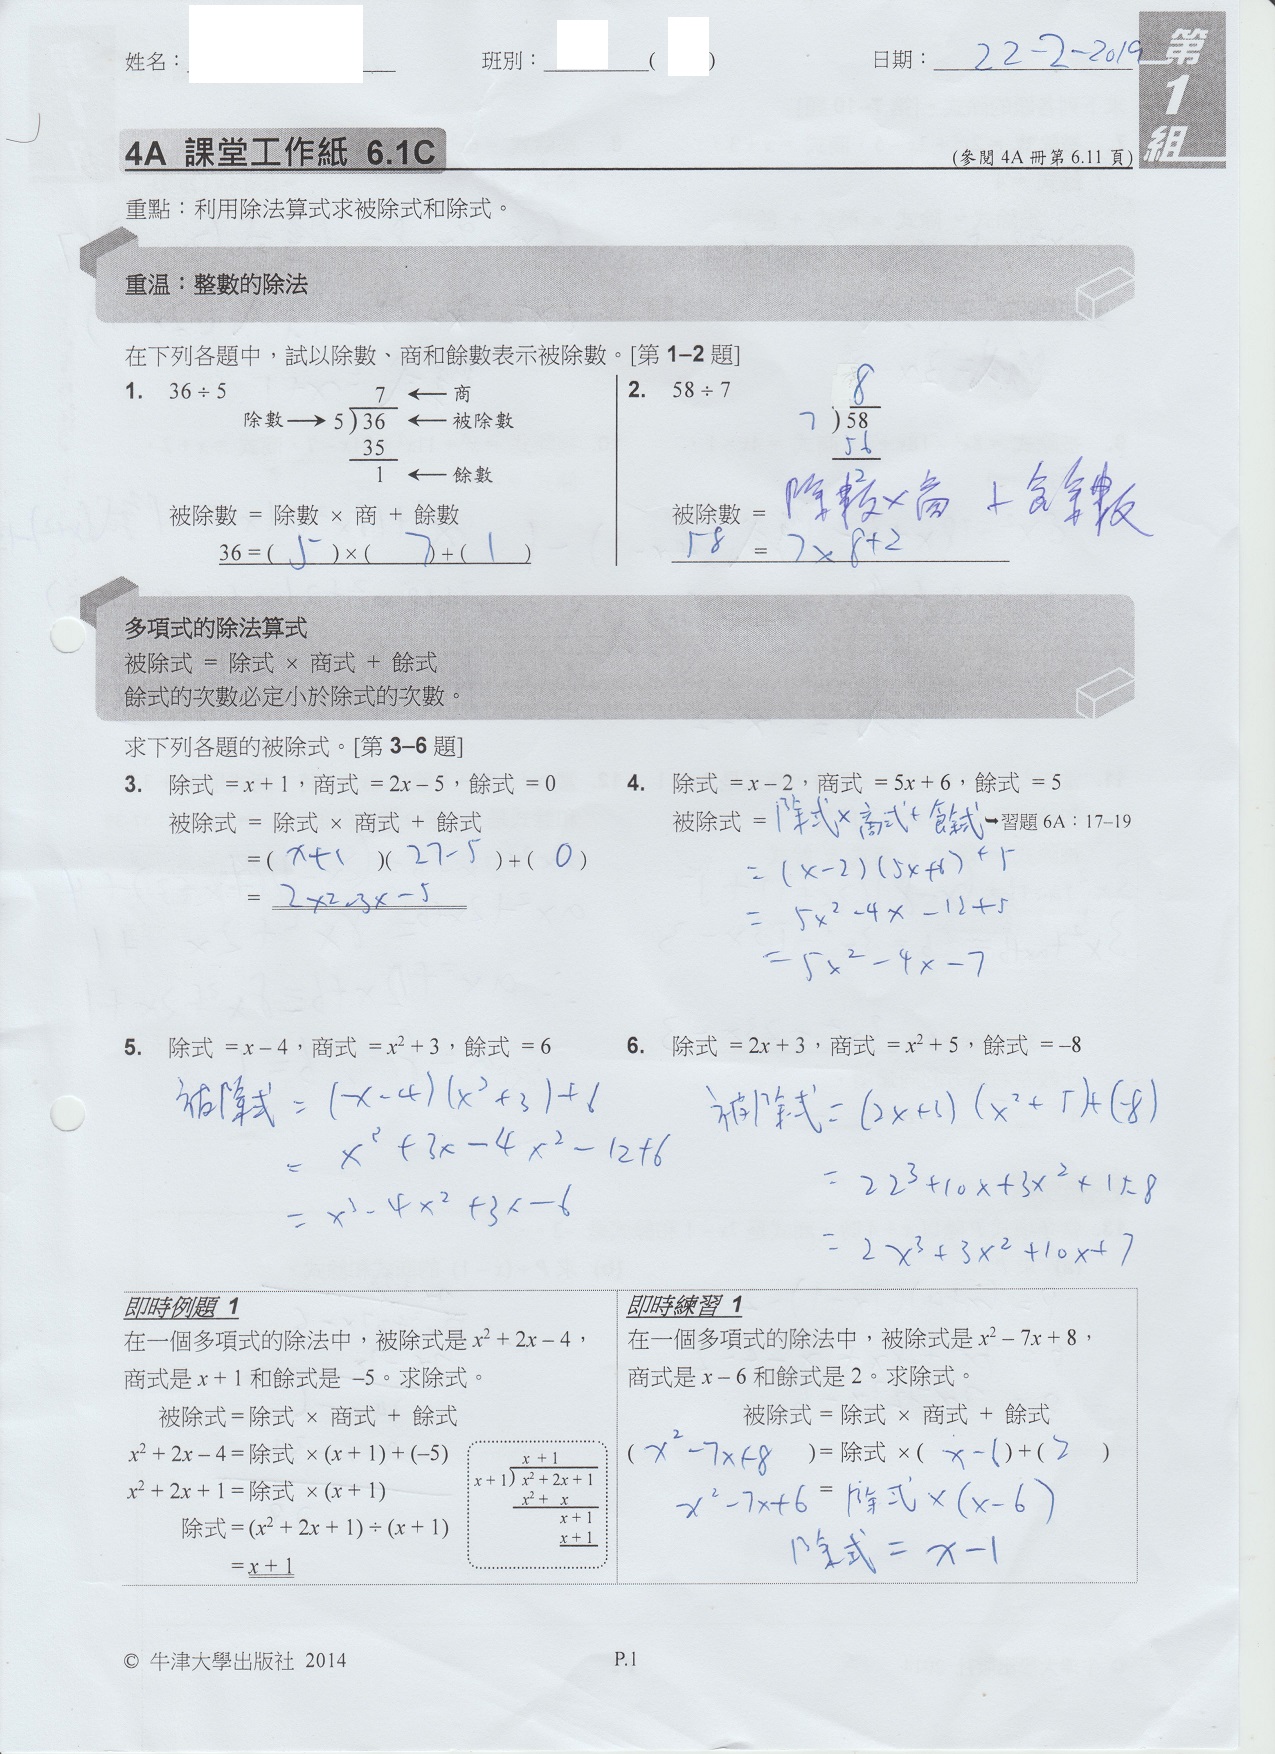 姓名：
班別：　(　)
日期：22-2-2019
第1組
4A 課堂工作紙 6.1C
(參閱 4A 冊第 6.11 頁)
重點：利用除法算式求被除式和除式。
重温：整數的除法
在下列各題中，試以除數、商和餘數表示被除數。[第 1–2 題]
1. 36 ÷ 5
7 ← 商
除數 → 5 ) 36 ← 被除數
35
1 ← 餘數
被除數 = 除數 × 商 + 餘數
36 = ( 5 ) × ( 7 ) + ( 1 )
2. 58 ÷ 7
8
7 ) 58
56
2
被除數 = 除數 × 商 + 餘數
58 = 7 x 8 + 2
多項式的除法算式
被除式 = 除式 × 商式 + 餘式
餘式的次數必定小於除式的次數。
求下列各題的被除式。[第 3–6 題]
3. 除式 = x + 1，商式 = 2x – 5，餘式 = 0
被除式 = 除式 × 商式 + 餘式
= ( x+1 )( 2x-5 ) + ( 0 )
= 2x2-3x-5
4. 除式 = x – 2，商式 = 5x + 6，餘式 = 5
被除式 = 除式 x 商式 + 餘式 ➥習題 6A：17–19
= (x-2)(5x+6) + 5
= 5x² -4x -12+5
= 5x² -4x -7
5. 除式 = x – 4，商式 = x² + 3，餘式 = 6
被除式 = (x-4)(x²+3)+6
= x³ +3x -4x² -12+6
= x³-4x² +3x-6
6. 除式 = 2x + 3，商式 = x² + 5，餘式 = –8
被除式 = (2x+3)(x²+5)+(-8)
= 2x³+10x+3x²+15-8
= 2x³+3x²+10x+7
即時例題 1
在一個多項式的除法中，被除式是 x² + 2x – 4，
商式是 x + 1 和餘式是 –5。求除式。
被除式 = 除式 × 商式 + 餘式
x² + 2x – 4 = 除式 × (x + 1) + (–5)
x² + 2x + 1 = 除式 × (x + 1)
除式 = (x² + 2x + 1) ÷ (x + 1)
= x + 1
x + 1
x + 1 ) x² + 2x + 1
x² + x
x + 1
x + 1
即時練習 1
在一個多項式的除法中，被除式是 x² – 7x + 8，
商式是 x – 6 和餘式是 2。求除式。
被除式 = 除式 × 商式 + 餘式
( x²-7x+8 ) = 除式 × ( x-6 ) + ( 2 )
x²-7x+6 = 除式 x (x-6)
除式 = x-1
© 牛津大學出版社 2014
P.1